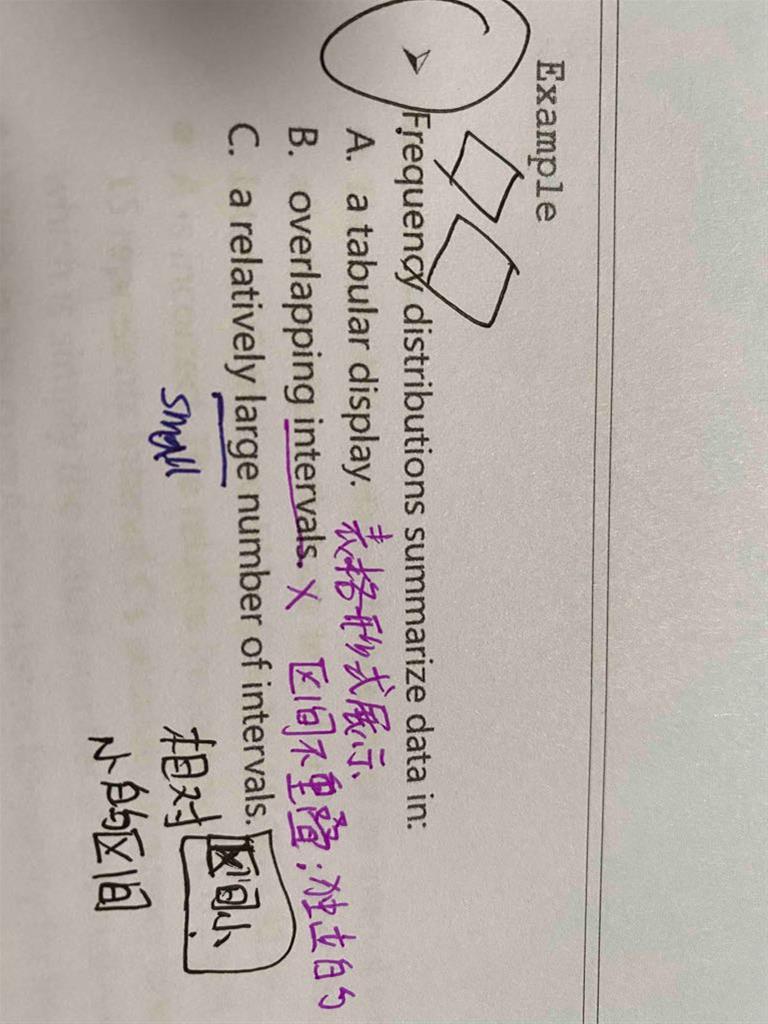 Example
➤ Frequency distributions summarize data in:
A. a tabular display. 表格形式展示
B. overlapping intervals. X 区间不重叠；独立的
C. a relatively large number of intervals. 区间小
small 相对
小的区间